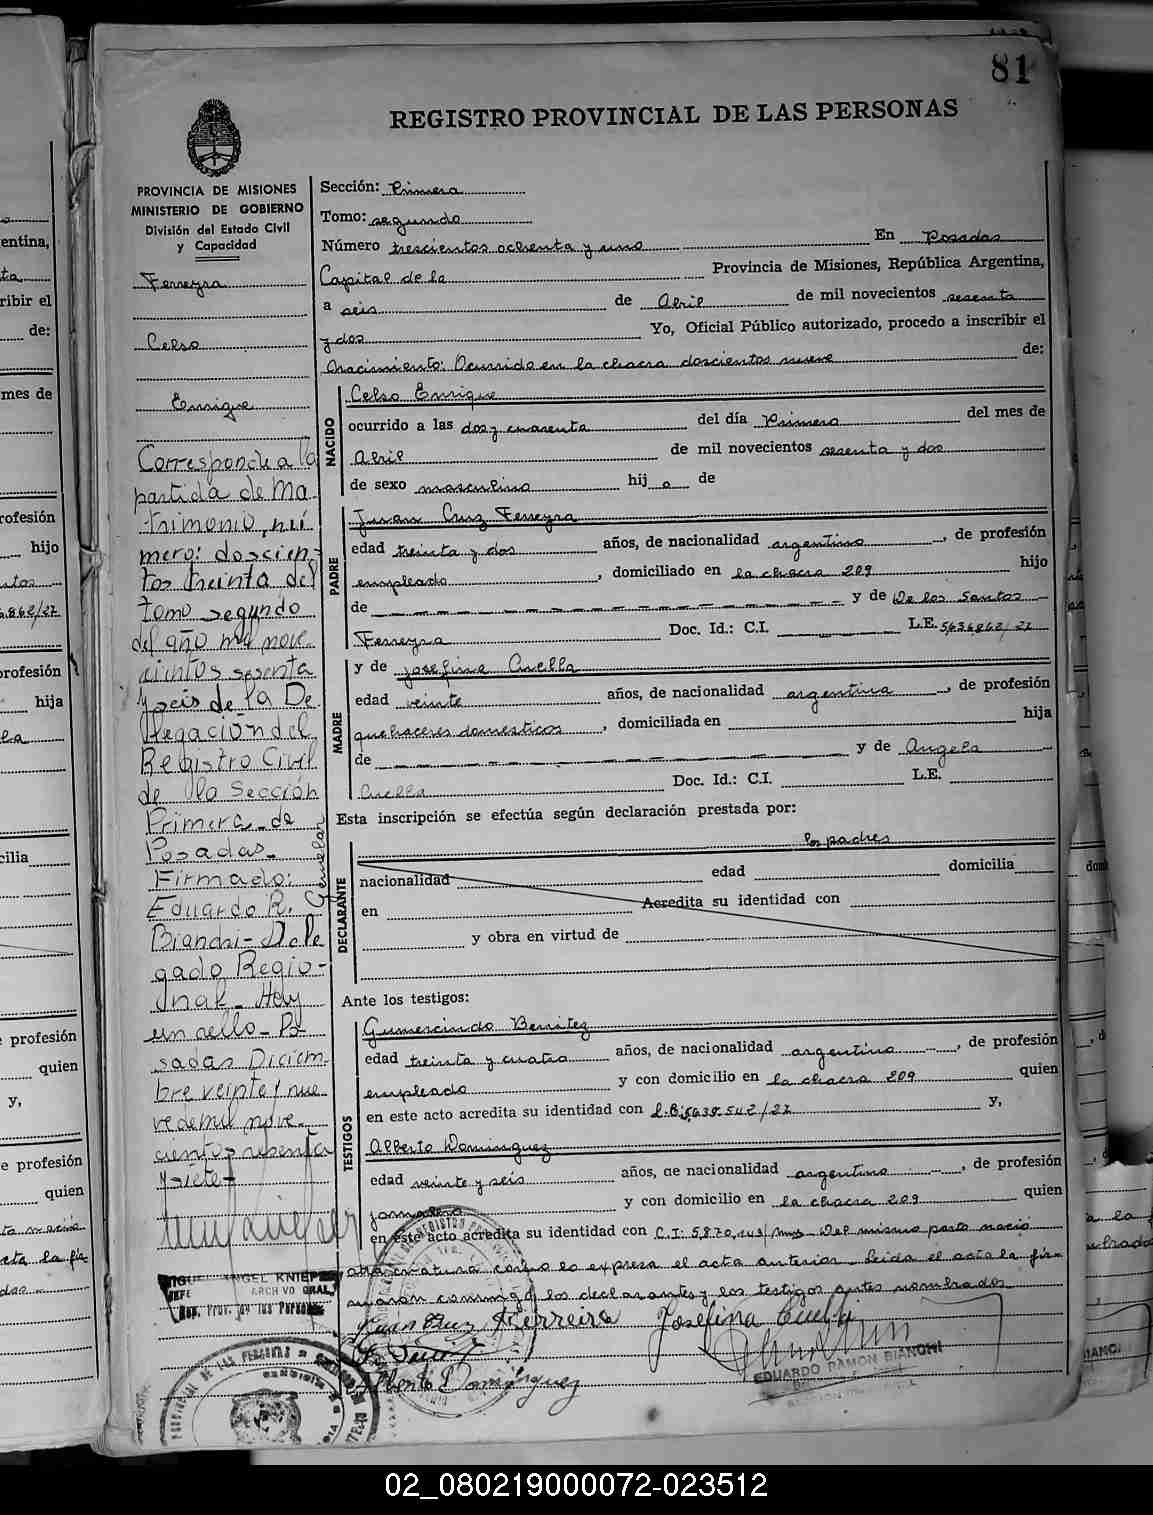 81
REGISTRO PROVINCIAL DE LAS PERSONAS
PROVINCIA DE MISIONES
MINISTERIO DE GOBIERNO
División del Estado Civil
y Capacidad
Ferreyra
Celso
Enrique
Corresponde a la
partida de Ma-
trimonio, nú-
mero: doscien-
tos treinta del
tomo segundo
del año mil nove-
cientos sesenta
y seis de la De-
legación del
Registro Civil
de la Sección
Primera de
Posadas.
Firmado:
Eduardo R.
Bianchi - Dele
gado Regio-
nal - Hay
un sello - Po-
sadas Diciem-
bre veinte y nue
ve de mil nove-
cientos setenta
y siete
ARCHIVO GRAL.
Sección: Primera
Tomo: segundo
Número trescientos ochenta y uno En Posadas
Capital de la Provincia de Misiones, República Argentina,
a seis de Abril de mil novecientos sesenta
y dos Yo, Oficial Público autorizado, procedo a inscribir el
nacimiento: Ocurrido en la chacra doscientos nueve de:
NACIDO
Celso Enrique
ocurrido a las dos y cuarenta del día Primero del mes de
Abril de mil novecientos sesenta y dos
de sexo masculino hijo de
PADRE
Juan Cruz Ferreyra
edad treinta y dos años, de nacionalidad argentino, de profesión
empleado, domiciliado en la chacra 209 hijo
de y de De los Santos
Ferreyra Doc. Id.: C.I. L.E.
MADRE
y de Josefina Cuella
edad veinte años, de nacionalidad argentina, de profesión
quehaceres domesticos, domiciliada en hija
de y de Angela
Cuella Doc. Id.: C.I. L.E.
Esta inscripción se efectúa según declaración prestada por:
los padres
DECLARANTE
nacionalidad edad domicilia
en Acredita su identidad con
y obra en virtud de
Ante los testigos:
TESTIGOS
Gumercindo Benitez
edad treinta y cuatro años, de nacionalidad argentino, de profesión
empleado y con domicilio en la chacra 209 quien
en este acto acredita su identidad con y,
Alberto Dominguez
edad veinte y seis años, de nacionalidad argentino, de profesión
jornalero y con domicilio en la chacra 209 quien
en este acto acredita su identidad con C.I: 5.870.143 Del mismo parto nació
otra criatura como lo expresa el acta anterior. Leida el acta la fir-
maron conmigo los declarantes y los testigos antes nombrados
Juan Cruz Ferreira Josefina Cuella
Alberto Dominguez
EDUARDO RAMON BIANCHI
02_080219000072-023512